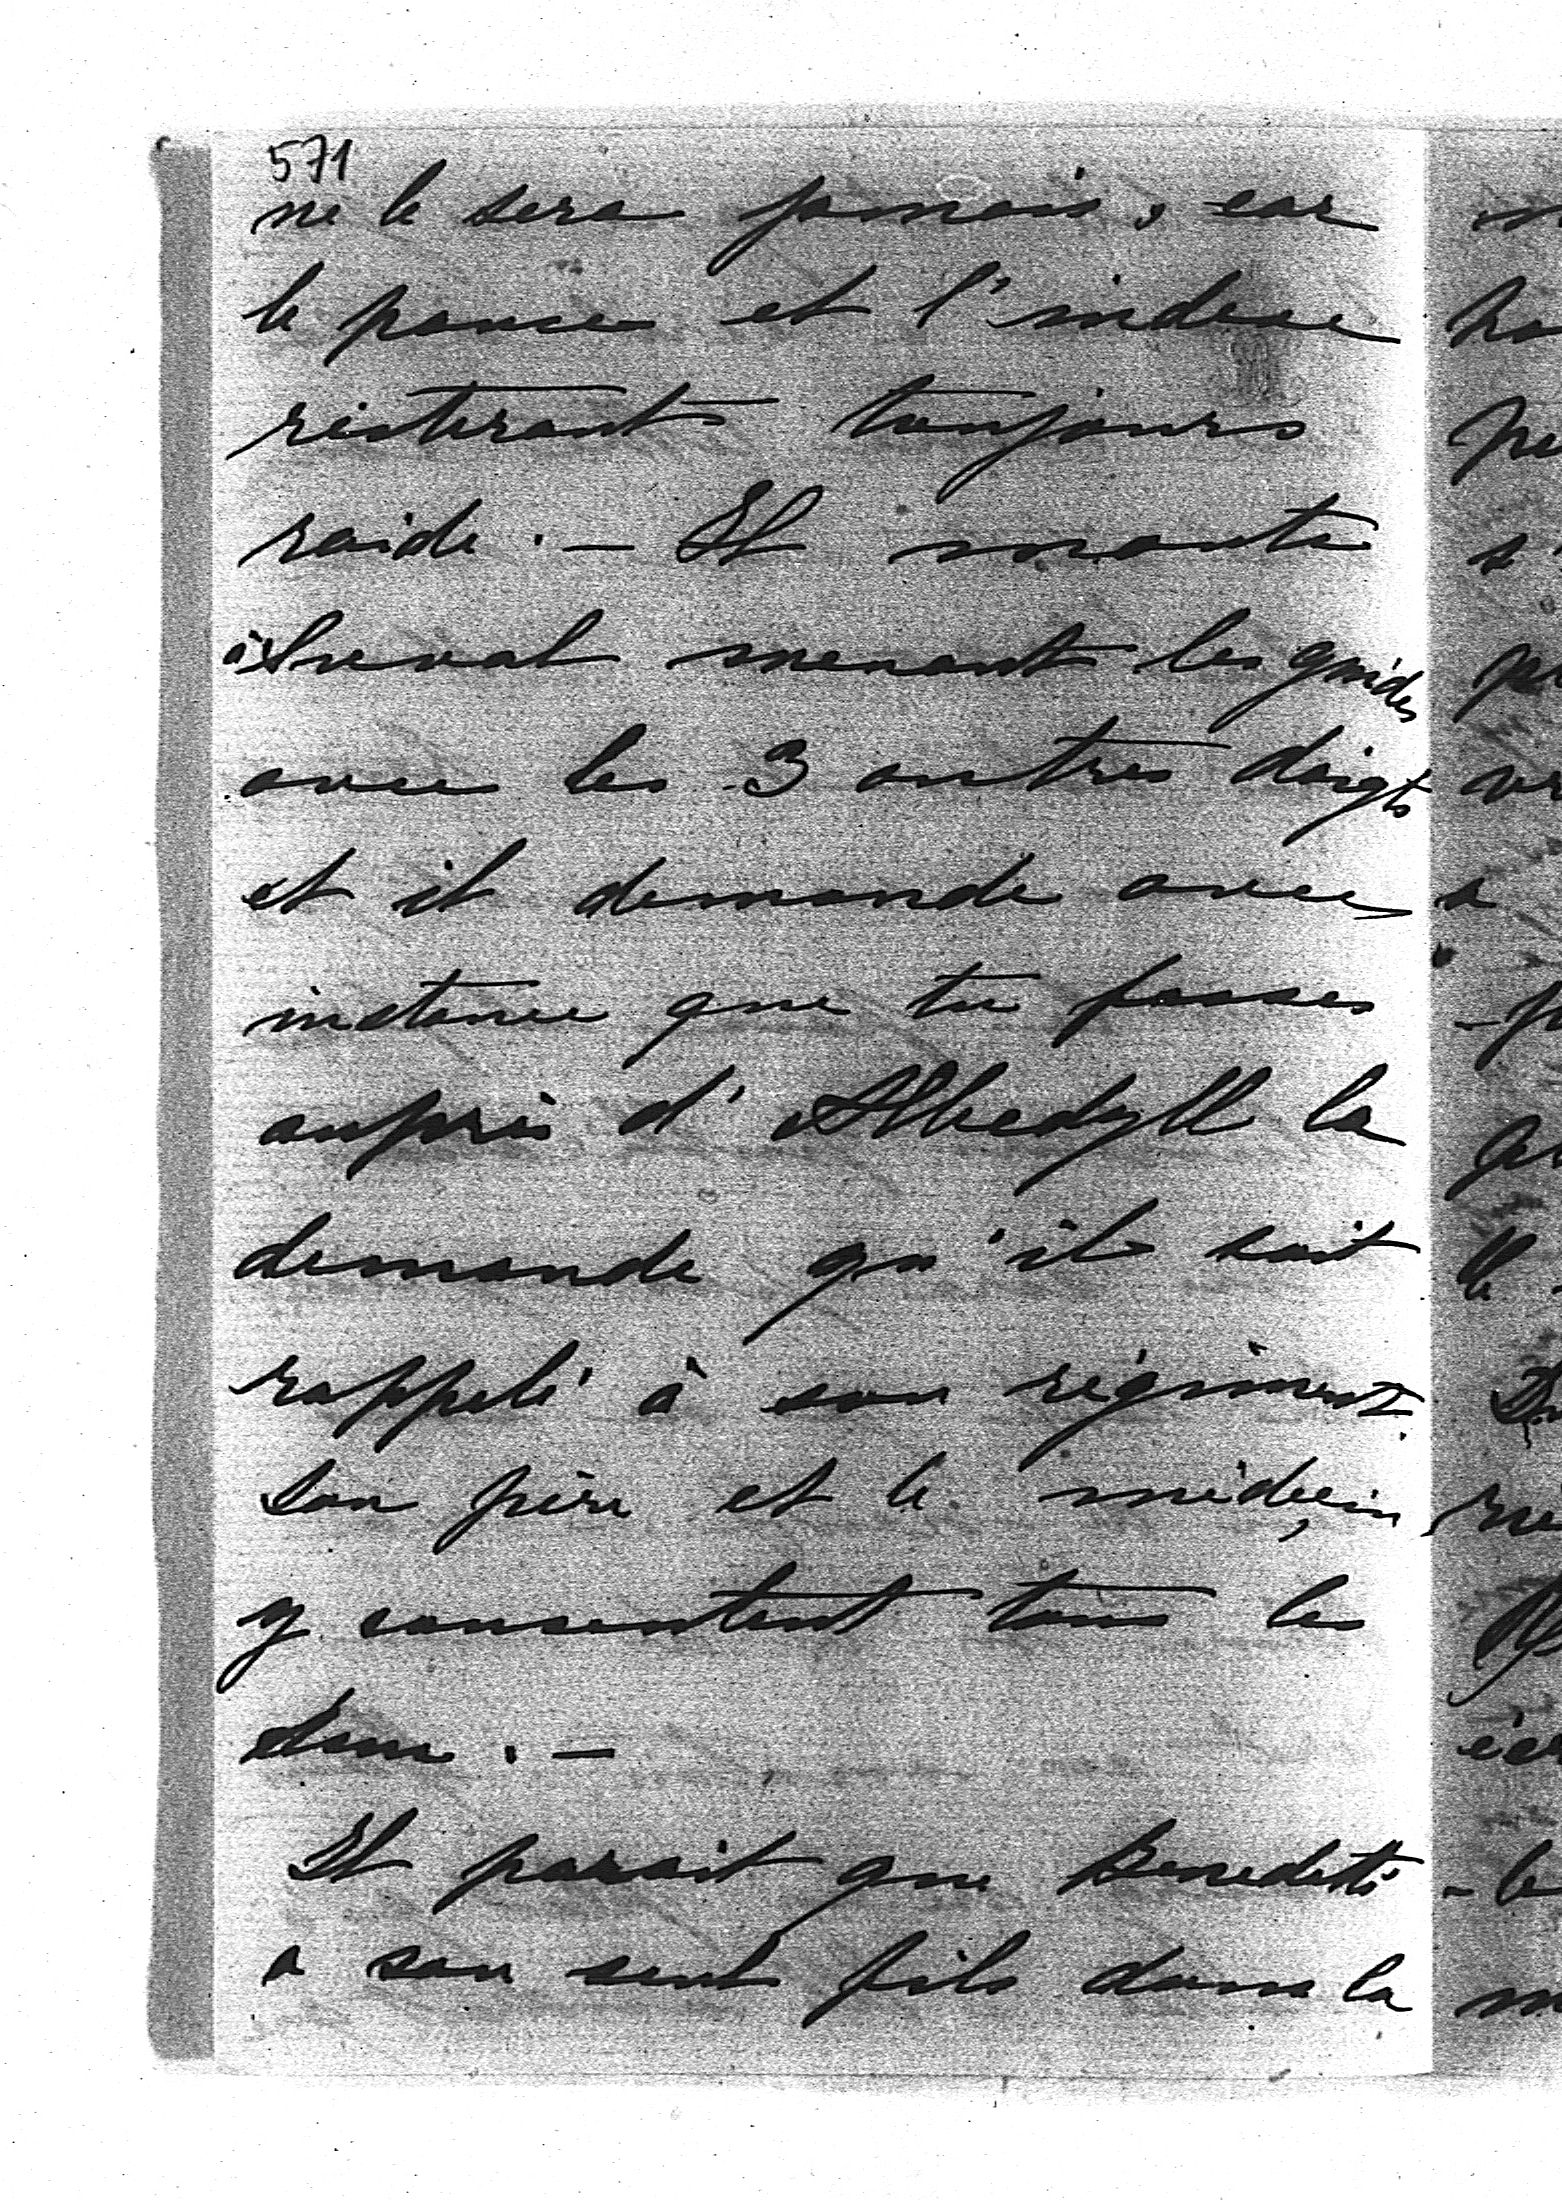 571
ne le sera jamais, car
le pouce et l'indexe
resterout toujours
raide. — Il monte
à cheval menant les guides
avec les 3 autres doigts
et il demande avec
instance que tu fasses
auprès d'Albedyll la
demande qu'il soit
rappelé à son régiment.
Son père et le médecin
y consentent tous les
deux. —
Il parait que Benedetti
a son seul fils dans la